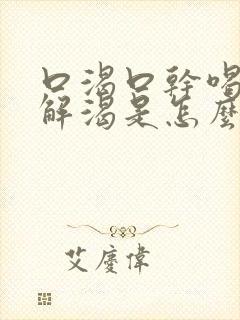 口渴口幹喝
解渴是怎麼
艾慶偉